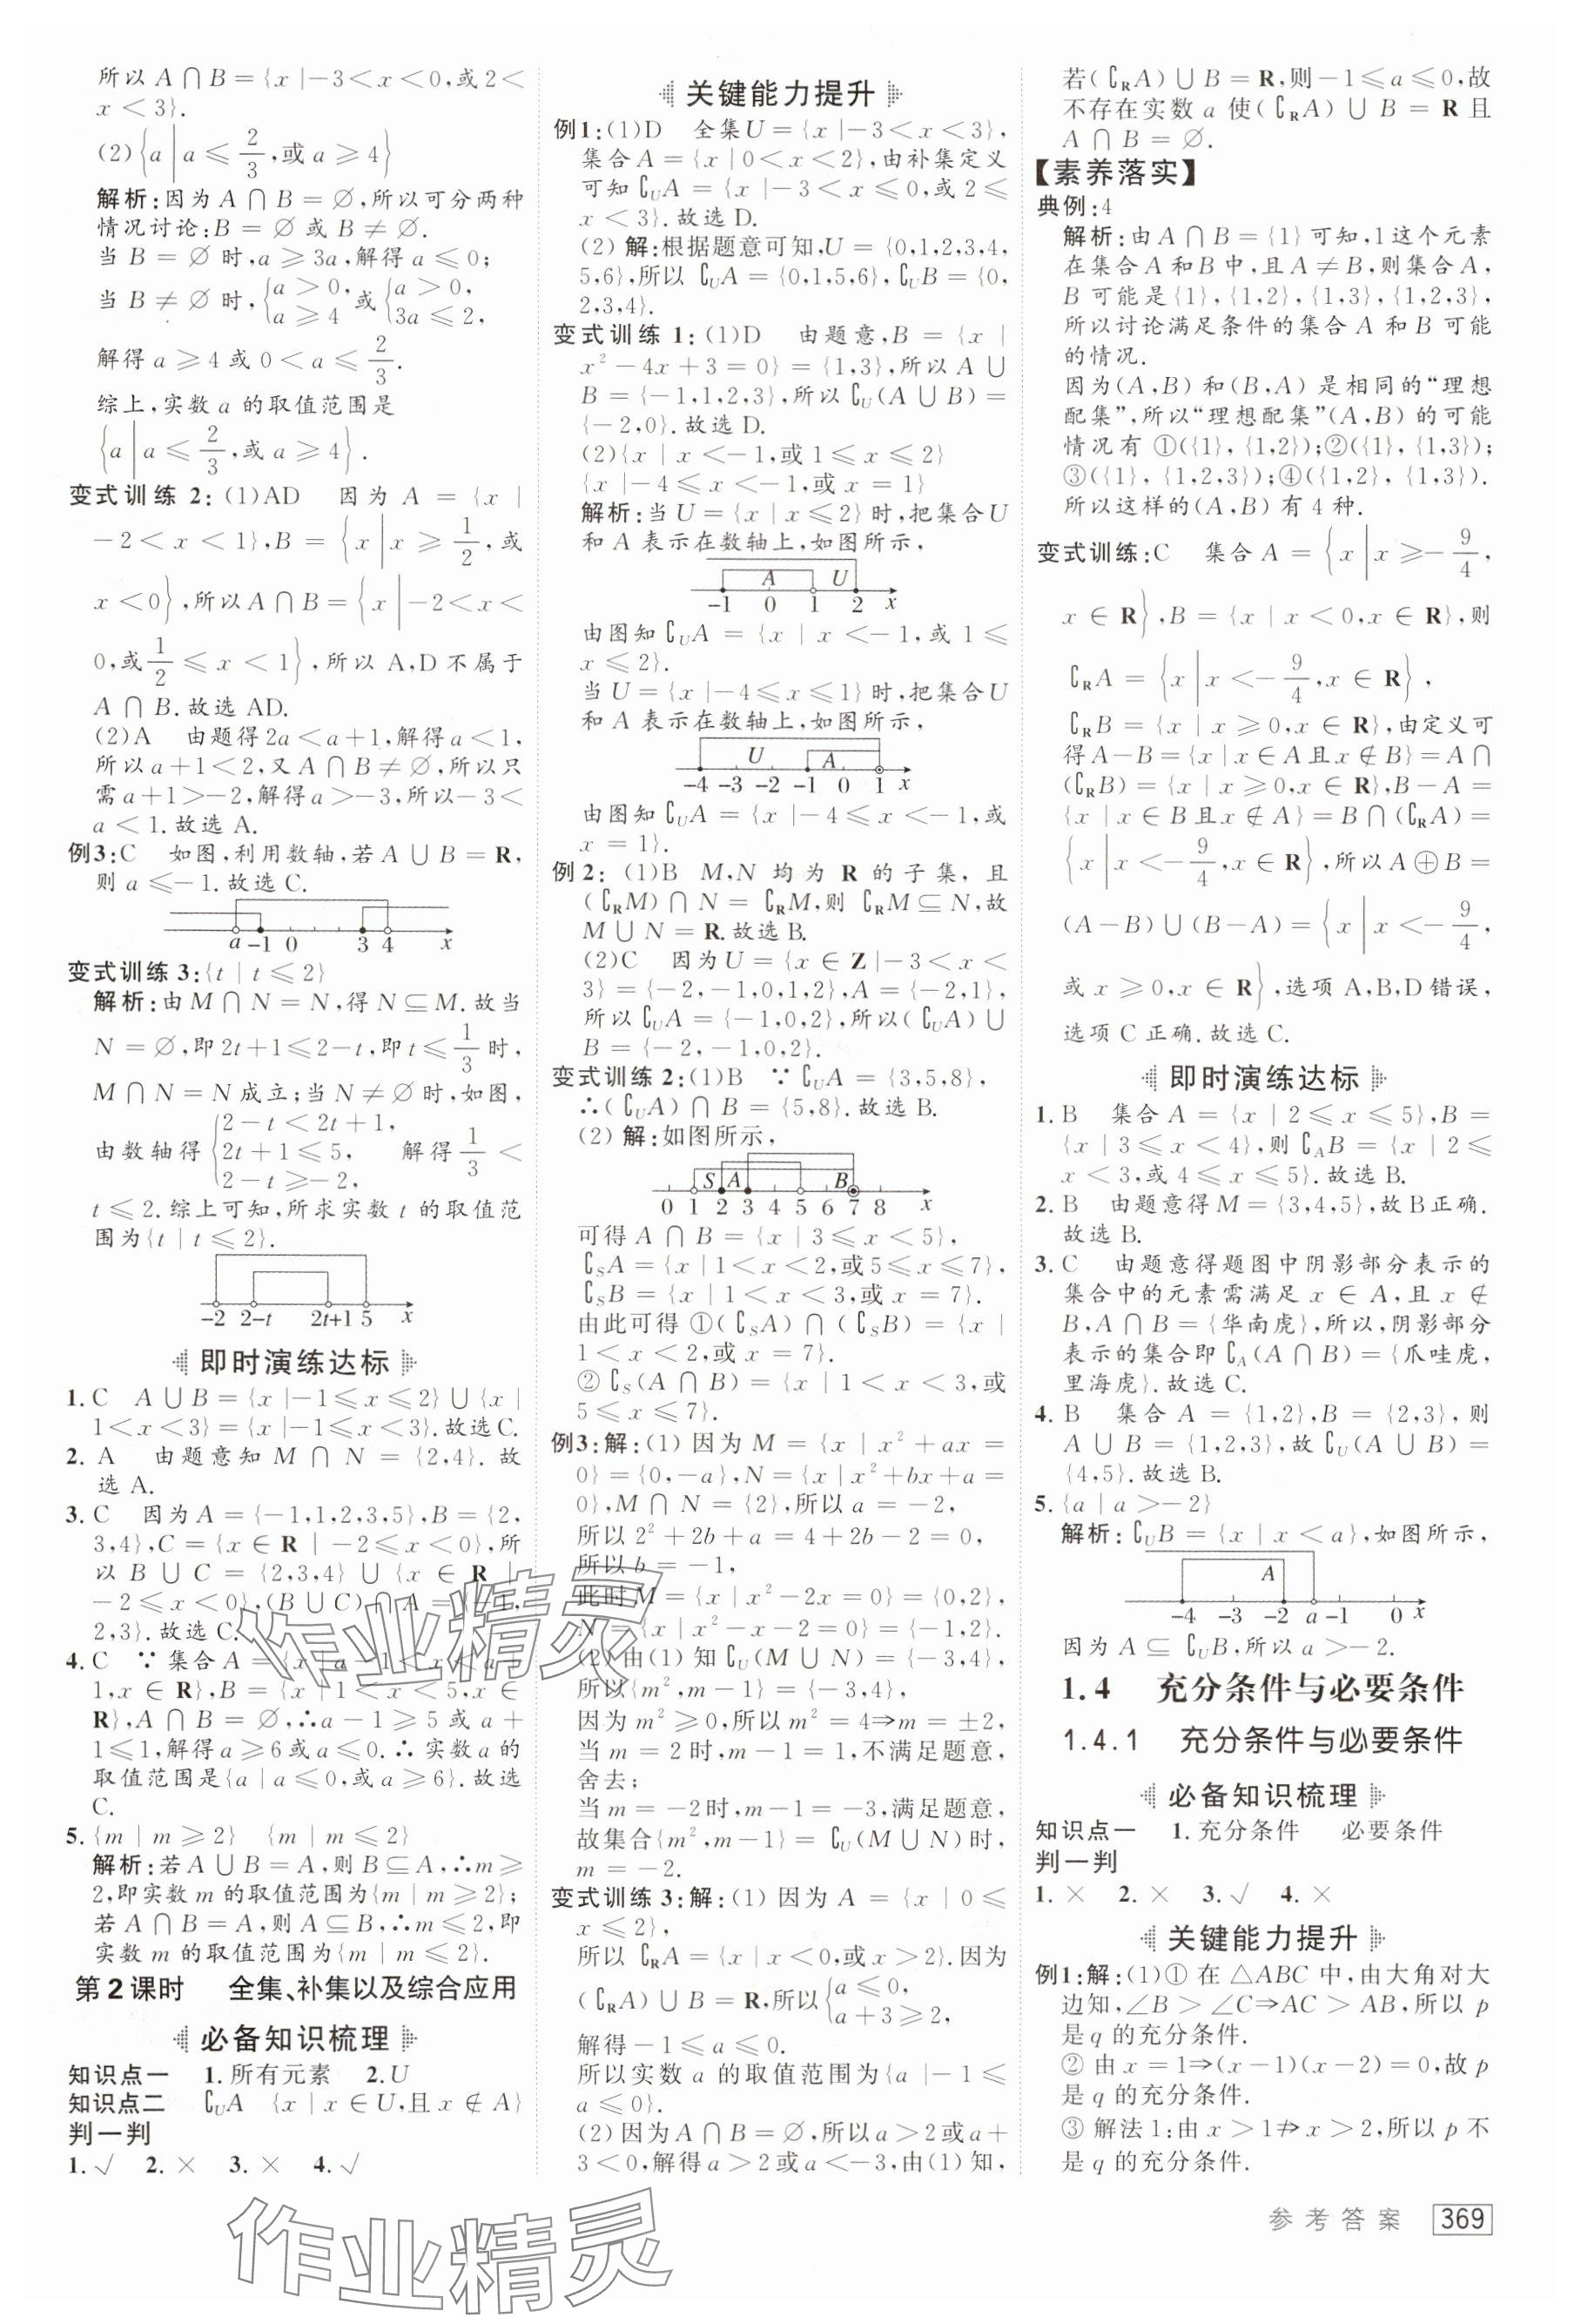 所以 A∩B={x|-3<x<0,或2<
x<3}.
(2){a|a≤2/3,或a≥4}
解析:因为A∩B=∅,所以可分两种
情况讨论:B=∅或B≠∅.
当B=∅时,a≥3a,解得a≤0;
当B≠∅时,{a>0, a≥4 或{a>0, 3a≤2,
解得a≥4或0<a≤2/3.
综上,实数a的取值范围是
{a|a≤2/3,或a≥4}.
变式训练2:(1)AD 因为A={x|
-2<x<1},B={x|x≥1/2,或
x<0},所以A∩B={x|-2<x<
0,或1/2≤x<1},所以A,D不属于
A∩B.故选AD.
(2)A 由题得2a<a+1,解得a<1,
所以a+1<2,又A∩B≠∅,所以只
需a+1>-2,解得a>-3,所以-3<
a<1.故选A.
例3:C 如图,利用数轴,若A∪B=R,
则a≤-1.故选C.
a -1 0 3 4 x
变式训练3:{t|t≤2}
解析:由M∩N=N,得N⊆M.故当
N=∅,即2t+1≤2-t,即t≤1/3时,
M∩N=N成立;当N≠∅时,如图,
由数轴得{2-t<2t+1, 2t+1≤5, 2-t≥-2, 解得1/3<
t≤2.综上可知,所求实数t的取值范
围为{t|t≤2}.
-2 2-t 2t+1 5 x
即时演练达标
1. C A∪B={x|-1≤x≤2}∪{x|
1<x<3}={x|-1≤x<3}.故选C.
2. A 由题意知M∩N={2,4}.故
选A.
3. C 因为A={-1,1,2,3,5},B={2,
3,4},C={x∈R|-2≤x<0},所
以B∪C={2,3,4}∪{x∈R|
-2≤x<0},(B∪C)∩A={-1,
2,3}.故选C.
4. C ∵集合A={x|a-1<x<a+
1,x∈R},B={x|1<x<5,x∈
R},A∩B=∅,∴a-1≥5或a+
1≤1,解得a≥6或a≤0.∴实数a的
取值范围是{a|a≤0,或a≥6}.故选
C.
5. {m|m≥2} {m|m≤2}
解析:若A∪B=A,则B⊆A,∴m≥
2,即实数m的取值范围为{m|m≥2};
若A∩B=A,则A⊆B,∴m≤2,即
实数m的取值范围为{m|m≤2}.
第2课时 全集、补集以及综合应用
必备知识梳理
知识点一 1.所有元素 2.U
知识点二 ∁UA {x|x∈U,且x∉A}
判一判
1.√ 2.× 3.× 4.√
关键能力提升
例1:(1)D 全集U={x|-3<x<3},
集合A={x|0<x<2},由补集定义
可知∁UA={x|-3<x≤0,或2≤
x<3}.故选D.
(2)解:根据题意可知,U={0,1,2,3,4,
5,6},所以∁UA={0,1,5,6},∁UB={0,
2,3,4}.
变式训练1:(1)D 由题意,B={x|
x²-4x+3=0}={1,3},所以A∪
B={-1,1,2,3},所以∁U(A∪B)=
{-2,0}.故选D.
(2){x|x<-1,或1≤x≤2}
{x|-4≤x<-1,或x=1}
解析:当U={x|x≤2}时,把集合U
和A表示在数轴上,如图所示,
A U
-1 0 1 2 x
由图知∁UA={x|x<-1,或1≤
x≤2}.
当U={x|-4≤x≤1}时,把集合U
和A表示在数轴上,如图所示,
U A
-4 -3 -2 -1 0 1 x
由图知∁UA={x|-4≤x<-1,或
x=1}.
例2:(1)B M,N均为R的子集,且
(∁RM)∩N=∁RM,则∁RM⊆N,故
M∪N=R.故选B.
(2)C 因为U={x∈Z|-3<x<
3}={-2,-1,0,1,2},A={-2,1},
所以∁UA={-1,0,2},所以(∁UA)∪
B={-2,-1,0,2}.
变式训练2:(1)B ∵∁UA={3,5,8},
∴(∁UA)∩B={5,8}.故选B.
(2)解:如图所示,
S A B
0 1 2 3 4 5 6 7 8 x
可得A∩B={x|3≤x<5},
∁SA={x|1<x<2,或5≤x≤7},
∁SB={x|1<x<3,或x=7}.
由此可得①(∁SA)∩(∁SB)={x|
1<x<2,或x=7}.
②∁S(A∩B)={x|1<x<3,或
5≤x≤7}.
例3:解:(1)因为M={x|x²+ax=
0}={0,-a},N={x|x²+bx+a=
0},M∩N={2},所以a=-2,
所以2²+2b+a=4+2b-2=0,
所以b=-1,
此时M={x|x²-2x=0}={0,2},
N={x|x²-x-2=0}={-1,2}.
(2)由(1)知∁U(M∪N)={-3,4},
所以{m²,m-1}={-3,4},
因为m²≥0,所以m²=4⇒m=±2,
当m=2时,m-1=1,不满足题意,
舍去;
当m=-2时,m-1=-3,满足题意,
故集合{m²,m-1}=∁U(M∪N)时,
m=-2.
变式训练3:解:(1)因为A={x|0≤
x≤2},
所以∁RA={x|x<0,或x>2}.因为
(∁RA)∪B=R,所以{a≤0, a+3≥2,
解得-1≤a≤0.
所以实数a的取值范围为{a|-1≤
a≤0}.
(2)因为A∩B=∅,所以a>2或a+
3<0,解得a>2或a<-3,由(1)知,
若(∁RA)∪B=R,则-1≤a≤0,故
不存在实数a使(∁RA)∪B=R且
A∩B=∅.
【素养落实】
典例:4
解析:由A∩B={1}可知,1这个元素
在集合A和B中,且A≠B,则集合A,
B可能是{1},{1,2},{1,3},{1,2,3},
所以讨论满足条件的集合A和B可能
的情况.
因为(A,B)和(B,A)是相同的“理想
配集”,所以“理想配集”(A,B)的可能
情况有①({1},{1,2});②({1},{1,3});
③({1},{1,2,3});④({1,2},{1,3}).
所以这样的(A,B)有4种.
变式训练:C 集合A={x|x≥-9/4,
x∈R},B={x|x<0,x∈R},则
∁RA={x|x<-9/4,x∈R},
∁RB={x|x≥0,x∈R},由定义可
得A-B={x|x∈A且x∉B}=A∩
(∁RB)={x|x≥0,x∈R},B-A=
{x|x∈B且x∉A}=B∩(∁RA)=
{x|x<-9/4,x∈R},所以A⊕B=
(A-B)∪(B-A)={x|x<-9/4,
或x≥0,x∈R},选项A,B,D错误,
选项C正确.故选C.
即时演练达标
1. B 集合A={x|2≤x≤5},B=
{x|3≤x<4},则∁AB={x|2≤
x<3,或4≤x≤5}.故选B.
2. B 由题意得M={3,4,5},故B正确.
故选B.
3. C 由题意得题图中阴影部分表示的
集合中的元素需满足x∈A,且x∉
B,A∩B={华南虎},所以,阴影部分
表示的集合即∁A(A∩B)={爪哇虎,
里海虎}.故选C.
4. B 集合A={1,2},B={2,3},则
A∪B={1,2,3},故∁U(A∪B)=
{4,5}.故选B.
5. {a|a>-2}
解析:∁UB={x|x<a},如图所示,
A
-4 -3 -2 a -1 0 x
因为A⊆∁UB,所以a>-2.
1.4 充分条件与必要条件
1.4.1 充分条件与必要条件
必备知识梳理
知识点一 1.充分条件 必要条件
判一判
1.× 2.× 3.√ 4.×
关键能力提升
例1:解:(1)①在△ABC中,由大角对大
边知,∠B>∠C⇒AC>AB,所以p
是q的充分条件.
②由x=1⇒(x-1)(x-2)=0,故p
是q的充分条件.
③解法1:由x>1⇏x>2,所以p不
是q的充分条件.
参考答案 369
作业精灵
作业精灵